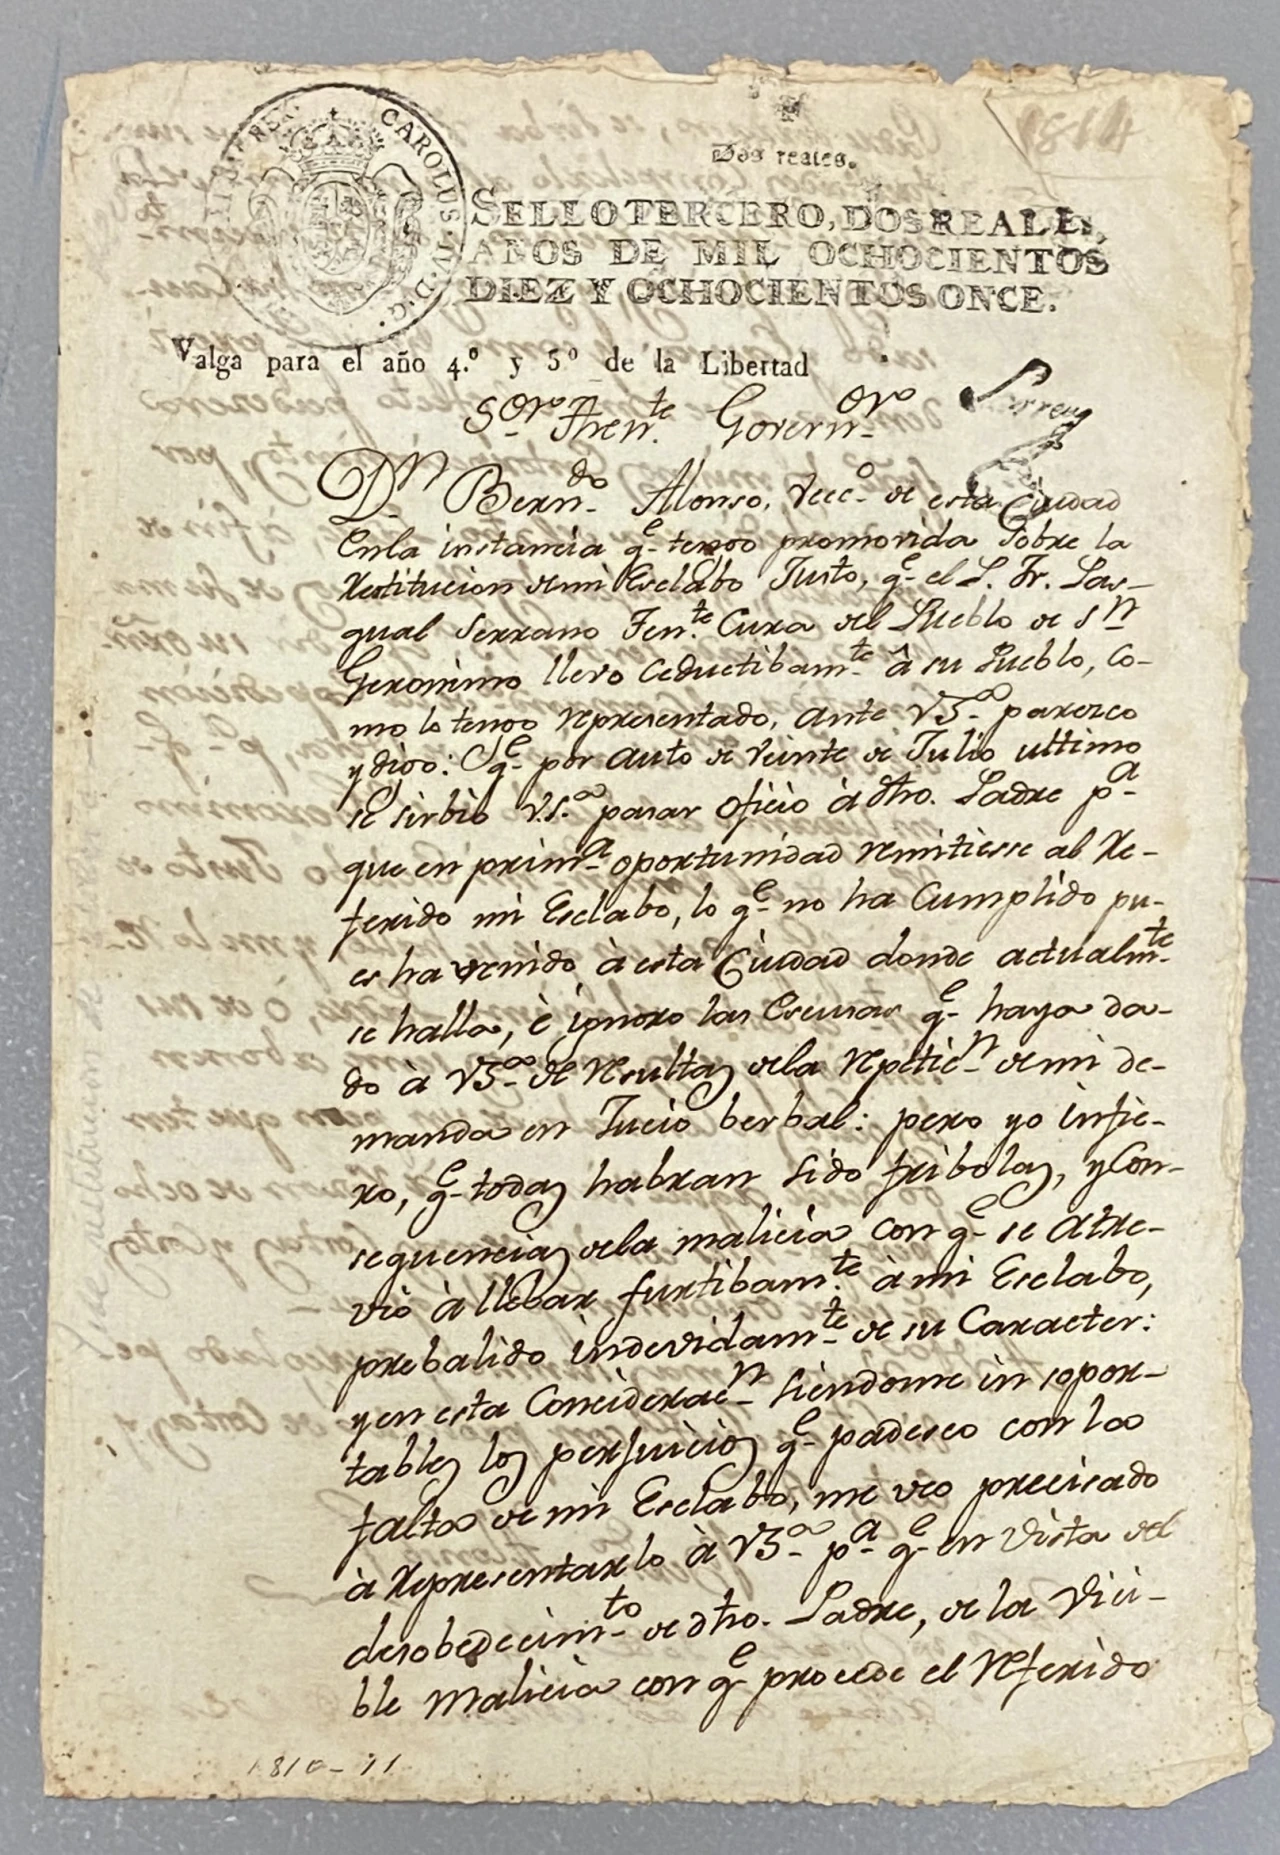 1814
Dos reales.
CAROLUS IV D.G.
SELLO TERCERO, DOS REALES,
AÑOS DE MIL OCHOCIENTOS
DIEZ Y OCHOCIENTOS ONCE.
Valga para el año 4.º y 5º de la Libertad
Sor. Then.te Governor.
Dn. Berndo. Alonso, Vecº. de esta Ciudad
en la instancia qe. tengo promovida sobre la
restitucion de mi Esclabo Justo, qe. el P. Fr. Pas-
qual Serrano Ten.te Cura del Pueblo de Sn.
Geronimo llevo ceductibamte. â su Pueblo, co-
mo lo tengo representado, ante VSa. paresco
y digo: Qe. por auto de veinte de Julio ultimo
se sirbio V.S.a pasar oficio à dho. Padre pa.
que en prima. oportunidad remitiesse al re-
ferido mi Esclabo, lo qe. no ha cumplido pu-
es ha venido à esta Ciudad donde actualmte.
se halla, è ignoro las escusas qe. haya da-
do à VSa. de resultas de la repeticn. de mi de-
manda en Jucio berbal: pero yo infie-
ro, qe. todas habran sido fribolas, y con-
sequencias de la malicia con qe. se atre-
vió à llebar furtibam.te à mi Esclabo,
prebalido indevidamte. de su Caracter:
y en esta Concideracn. siendome in sopor-
tables los perjuicios qe. padesco con la
falta de mi Esclabo, me veo precisado
à representarlo à VSa. pa. qe. en vista del
desobedecimto. de dho. Padre, de la vici-
ble malicia con qe. procede el referido
1810-11